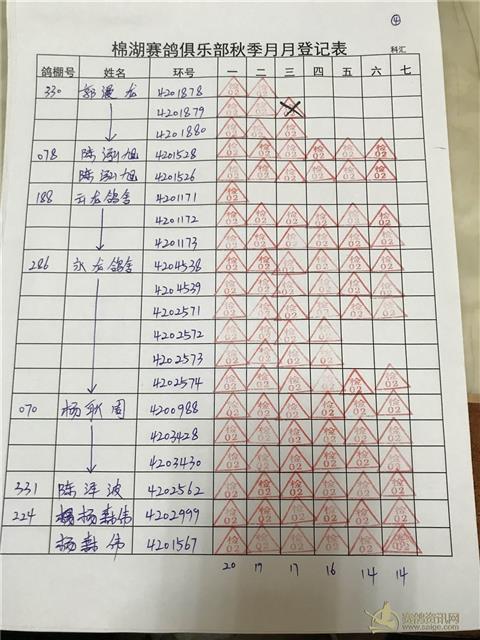 ④
棉湖赛鸽俱乐部秋季月月登记表
科汇
鸽棚号 姓名 环号 一 二 三 四 五 六 七
330 郭漫龙 4201878 检02 检02
4201879 检02 检02
4201880 检02 检02 检02
078 陈泓旭 4201528 检02 检02 检02 检02 检02 检02
陈泓旭 4201526 检02 检02 检02 检02 检02 检02
188 龙鸽舍 4201171 检02
4201172 检02 检02 检02 检02 检02 检02
4201173 检02 检02 检02 检02 检02 检02
286 永龙鸽舍 4204538 检02 检02 检02 检02 检02 检02
4204539 检02 检02 检02 检02 检02 检02
4202571 检02 检02 检02 检02 检02 检02
4202572 检02 检02 检02 检02
4202573 检02 检02 检02 检02
4202574 检02 检02 检02 检02 检02 检02
070 杨周 4200988 检02 检02 检02 检02 检02 检02
4203428 检02 检02 检02 检02 检02 检02
4203430 检02 检02 检02 检02 检02 检02
331 陈泽波 4202562 检02 检02 检02 检02 检02 检02
224 杨伟 4202999 检02 检02 检02 检02 检02 检02
杨伟 4201567 检02 检02 检02 检02 检02 检02
20 17 17 16 14 14
赛鸽资讯网
www.saige.com